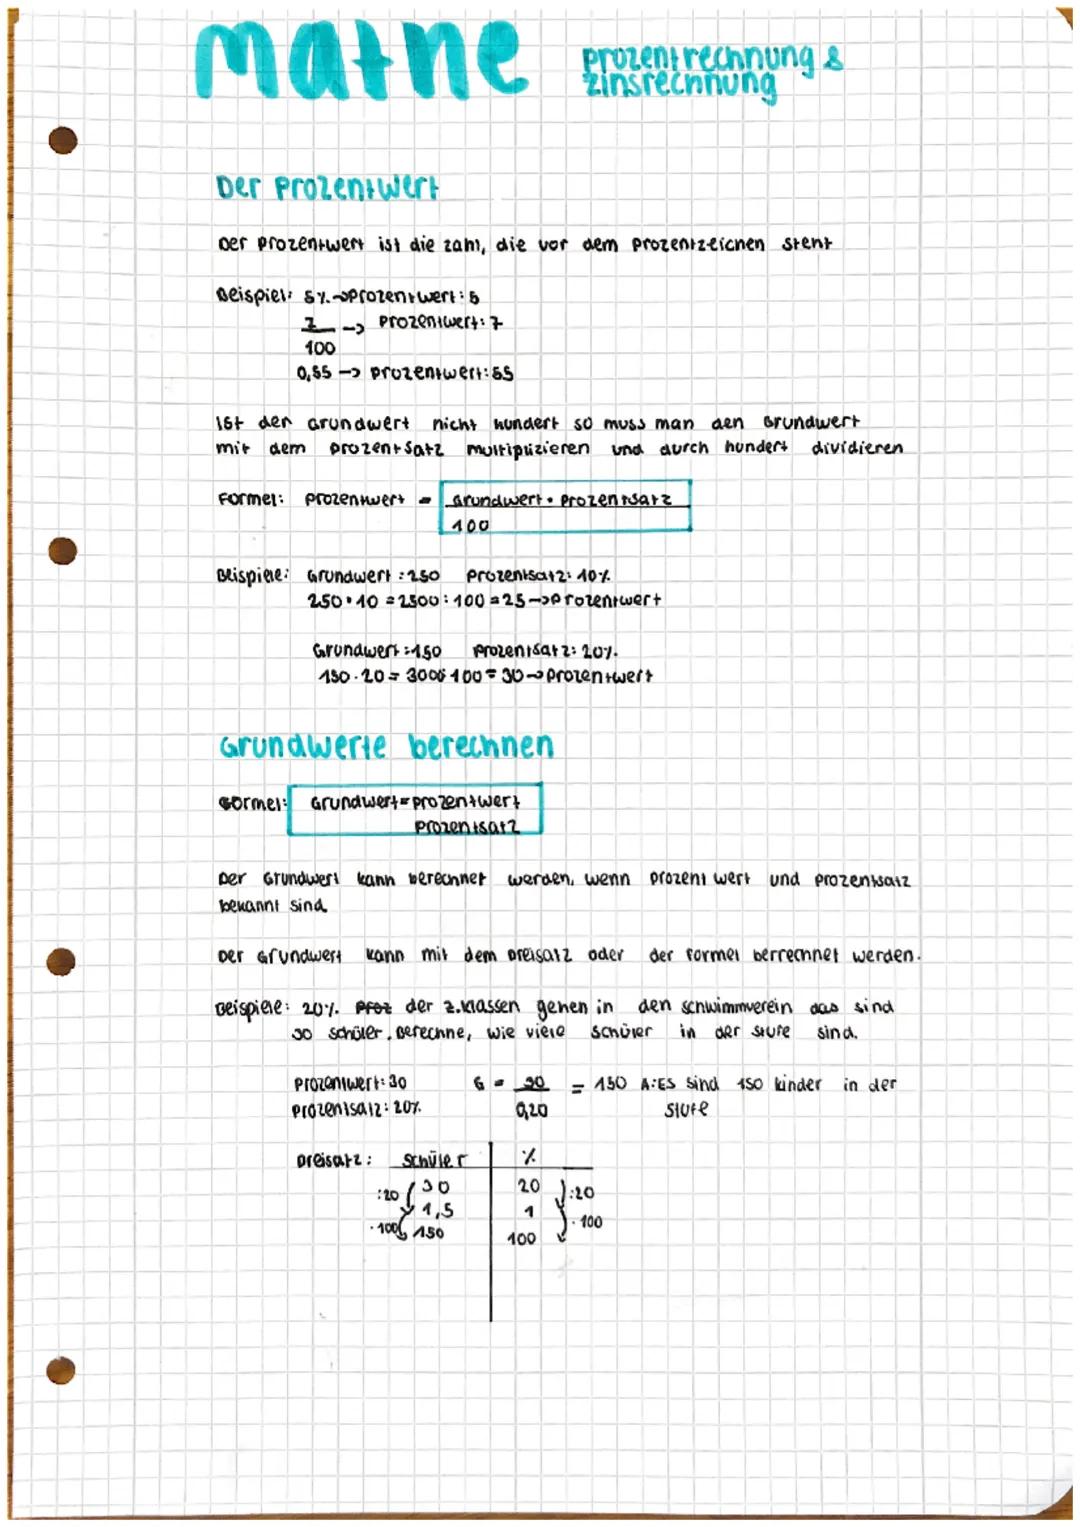 mathe
prozentrechnung &
zinsrechnung
Der Prozentwert
Der Prozentwert ist die zahl, die vor dem Prozentzeichen steht
Beispiel: 5%->Prozentwert: 5
7 -> Prozentwert: 7
100
0,55 -> Prozentwert: 55
Ist der Grundwert nicht hundert so muss man den Grundwert
mit dem Prozentsatz multiplizieren und durch hundert dividieren
Formel: Prozentwert = Grundwert · Prozentsatz
100
Beispiele: Grundwert: 250 Prozentsatz: 10%
250·10=2500:100=25->Prozentwert
Grundwert: 150 Prozentsatz: 20%
150·20=3000:100=30->Prozentwert
Grundwerte berechnen
Formel: Grundwert=prozentwert
Prozentsatz
Der Grundwert kann berechnet werden, wenn Prozent wert und Prozentsatz
bekannt sind
Der Grundwert kann mit dem Dreisatz oder der Formel berrechnet werden.
Beispiele: 20% Proz der 7.klassen gehen in den schwimmverein das sind
30 schüler. Berechne, wie viele schüler in der stufe sind.
Prozentwert: 30 G = 30 = 150 A: Es sind 150 kinder in der
Prozentsatz: 20% 0,20 Stufe
Dreisatz: Schüler %
:20 30 20 :20
1,5 1
·100 150 100 ·100